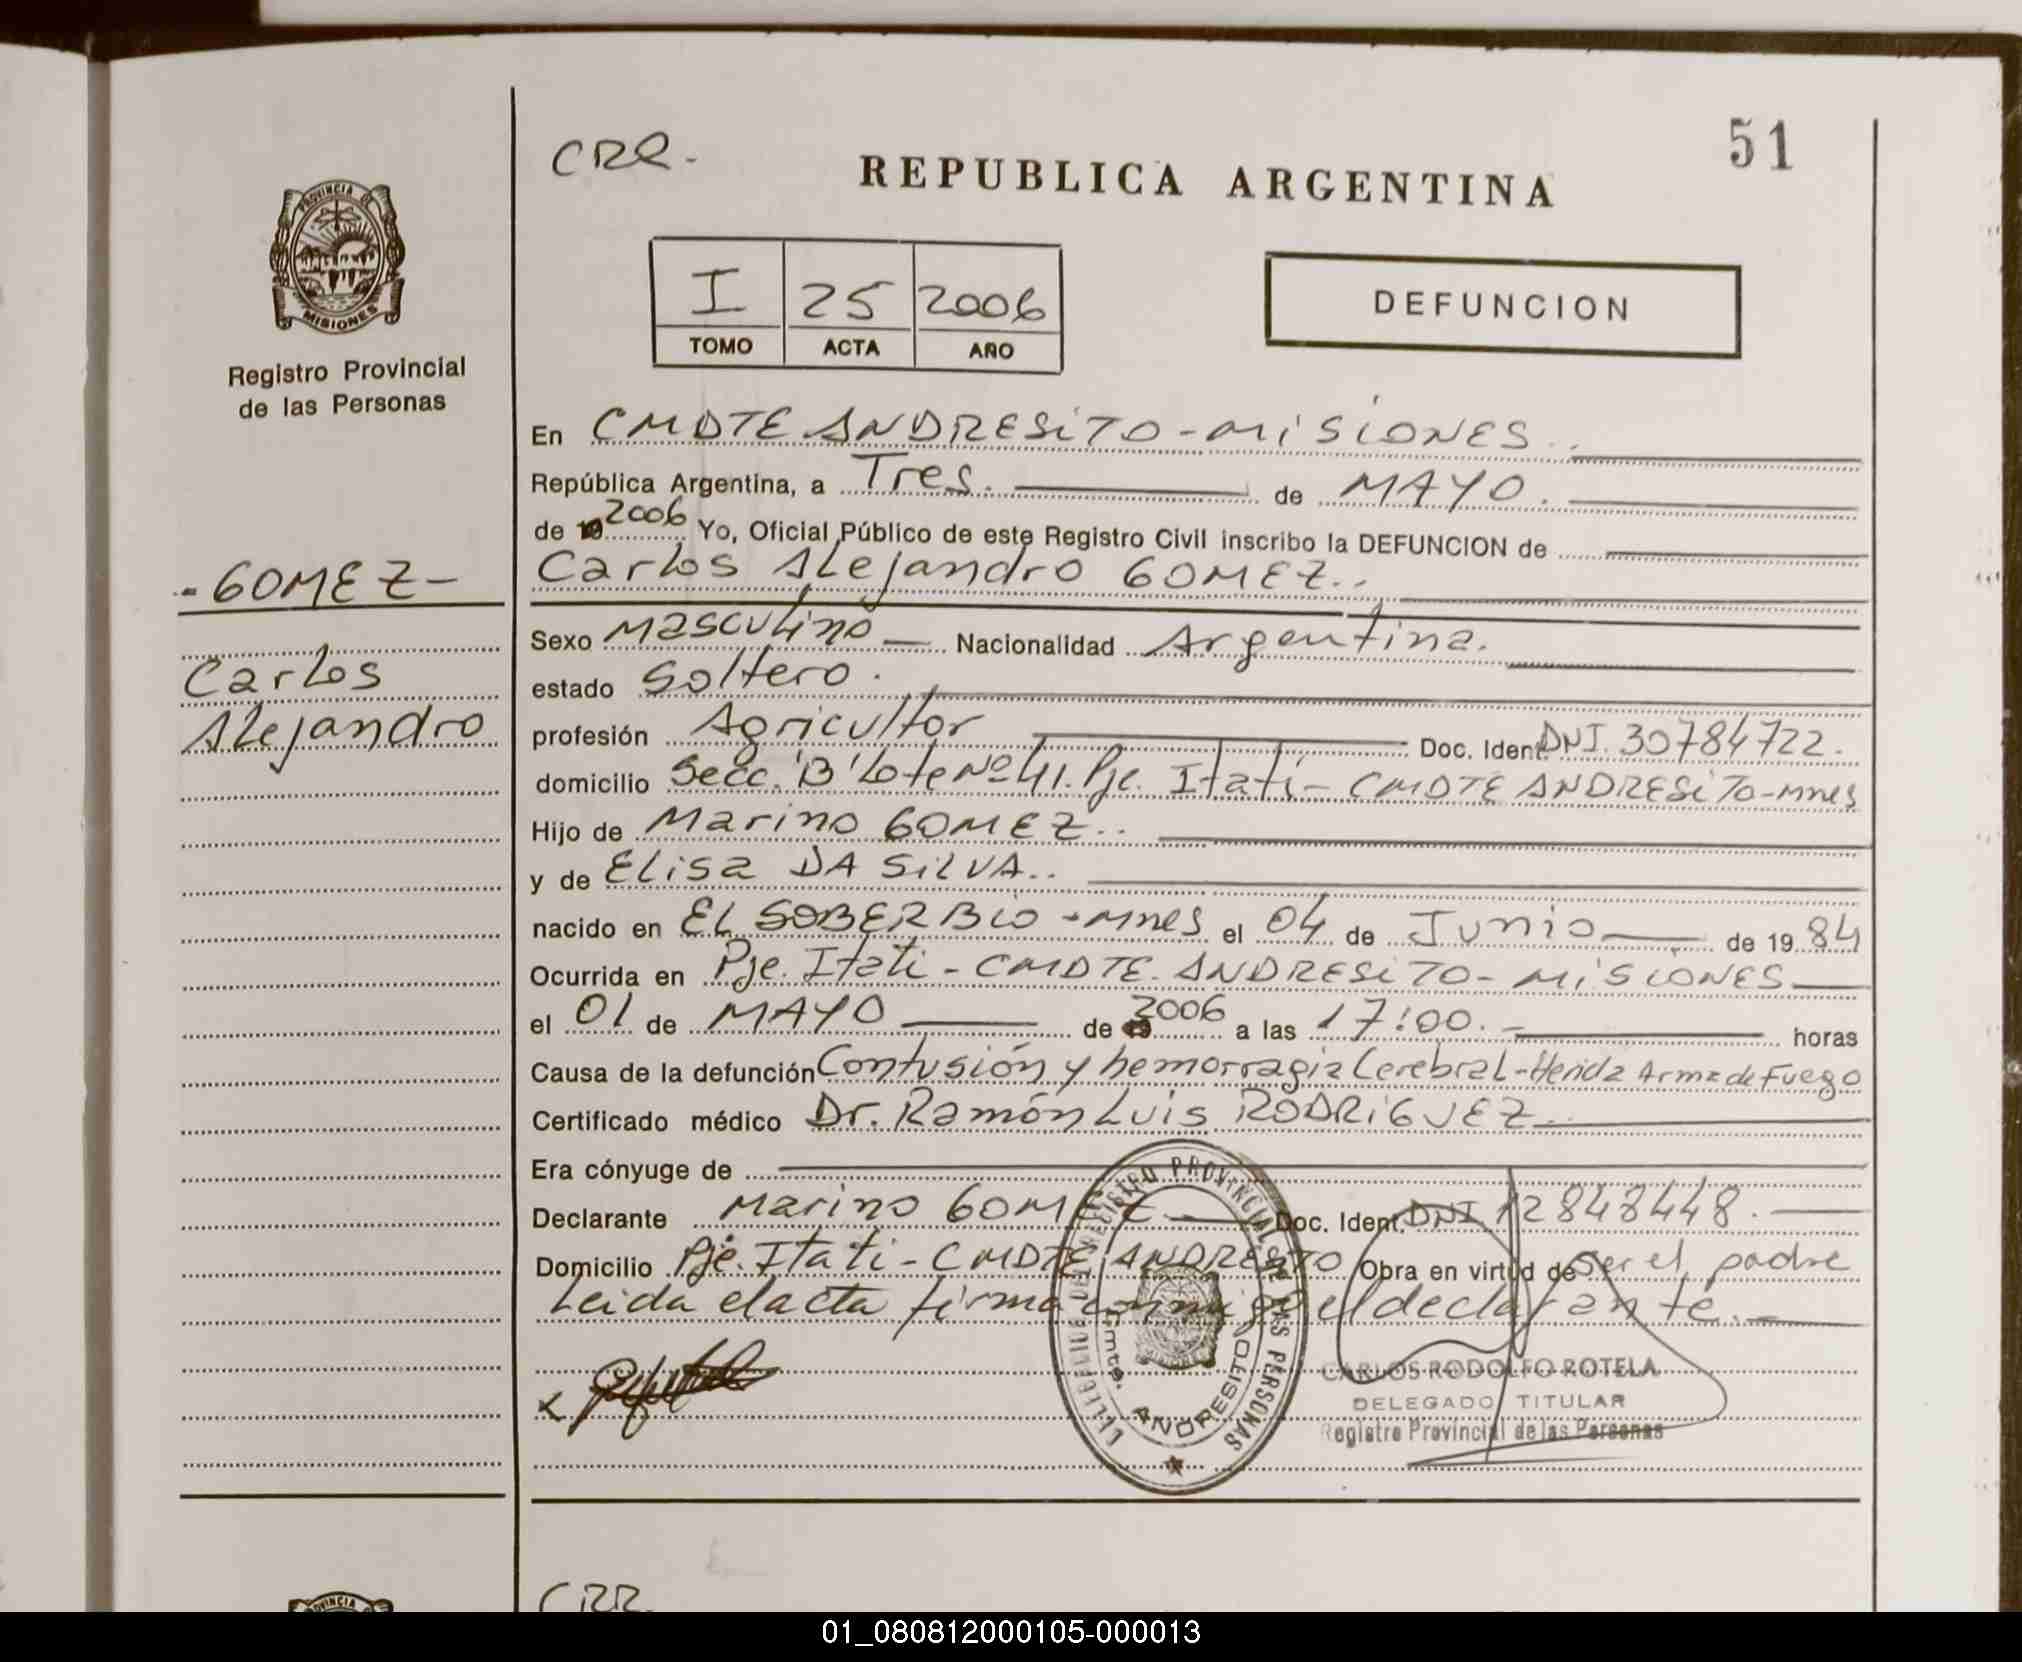 51
CRR.
REPUBLICA ARGENTINA
PROVINCIA DE
MISIONES
Registro Provincial
de las Personas
I 25 2006
TOMO ACTA AÑO
DEFUNCION
En CMDTE ANDRESiTO - MiSiONES.
República Argentina, a Tres. de MAYO.
de 2006 Yo, Oficial Público de este Registro Civil inscribo la DEFUNCION de
Carlos Alejandro GOMEZ..
- GOMEZ -
Carlos
Alejandro
Sexo Masculino Nacionalidad Argentina.
estado Soltero.
profesión Agricultor Doc. Ident. DNI. 30784722.
domicilio Secc. 'B' Lote Nº 41. Pje. Itatí - CMDTE ANDRESiTO-Mnes
Hijo de Marino GOMEZ..
y de Elisa DA SiLVA..
nacido en EL SOBERBiO - Mnes el 04 de Junio de 1984
Ocurrida en Pje. Itati - CMDTE. ANDRESiTO - MiSiONES
el 01 de MAYO de 2006 a las 17:00. horas
Causa de la defunción Contusión y hemorragia Cerebral - Herida Arma de Fuego
Certificado médico Dr. Ramón Luis RODRiGUEZ
Era cónyuge de
Declarante Marino GOMEZ Doc. Ident. DNI 12848448.
Domicilio Pje. Itati - CMDTE ANDRESiTO Obra en virtud de ser el padre
Leida el acta firma conmigo el declarante.
REGISTRO PROVINCIAL DE LAS PERSONAS
Cmte. ANDRESITO
CARLOS RODOLFO ROTELA
DELEGADO TITULAR
Registro Provincial de las Personas
PROVINCIA
CRR.
01_080812000105-000013